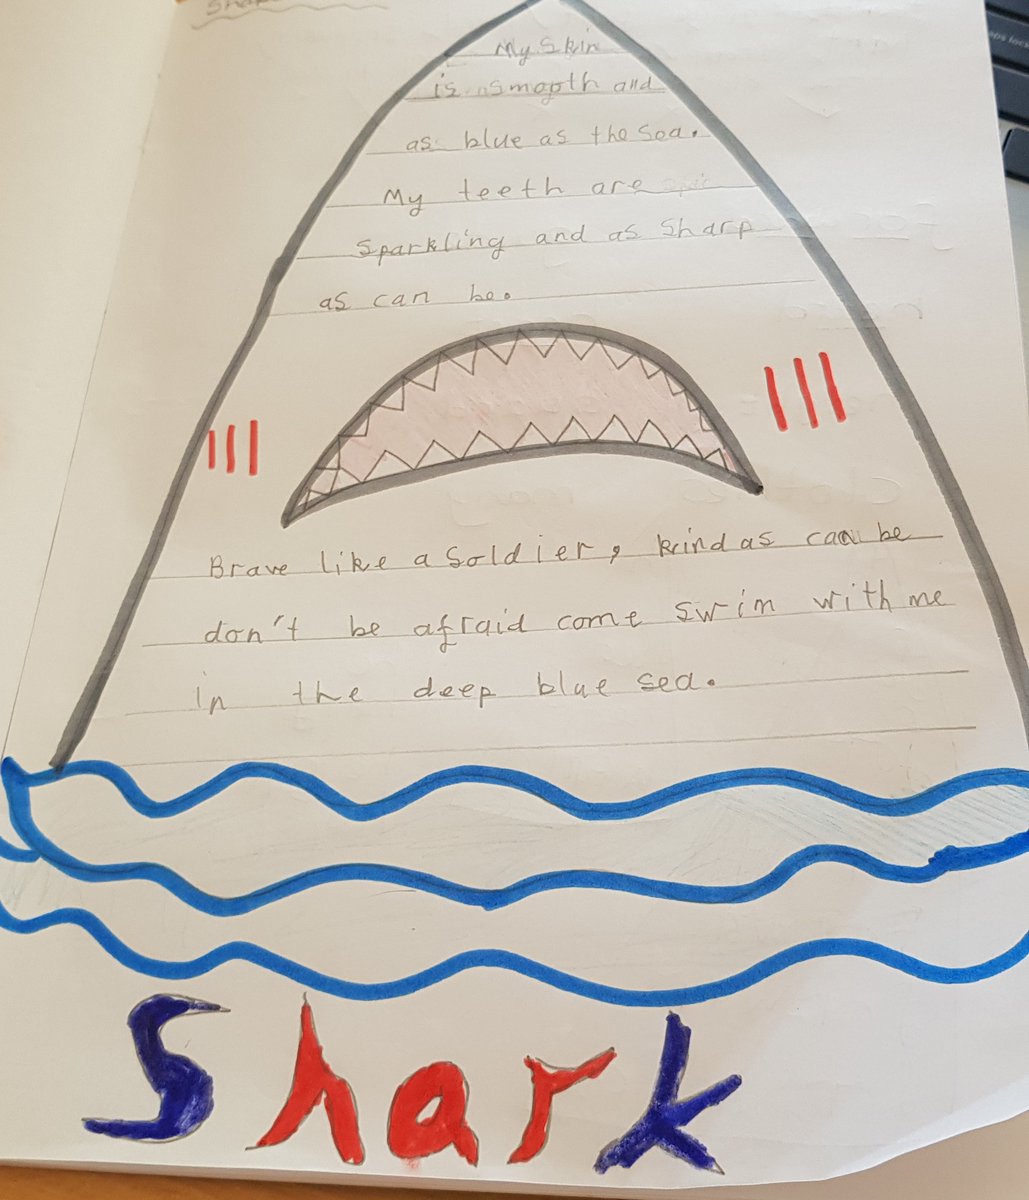 My skin
is smooth and
as blue as the sea.
My teeth are
sparkling and as sharp
as can be.
Brave like a soldier, kind as can be
don't be afraid come swim with me
in the deep blue sea.
Shark